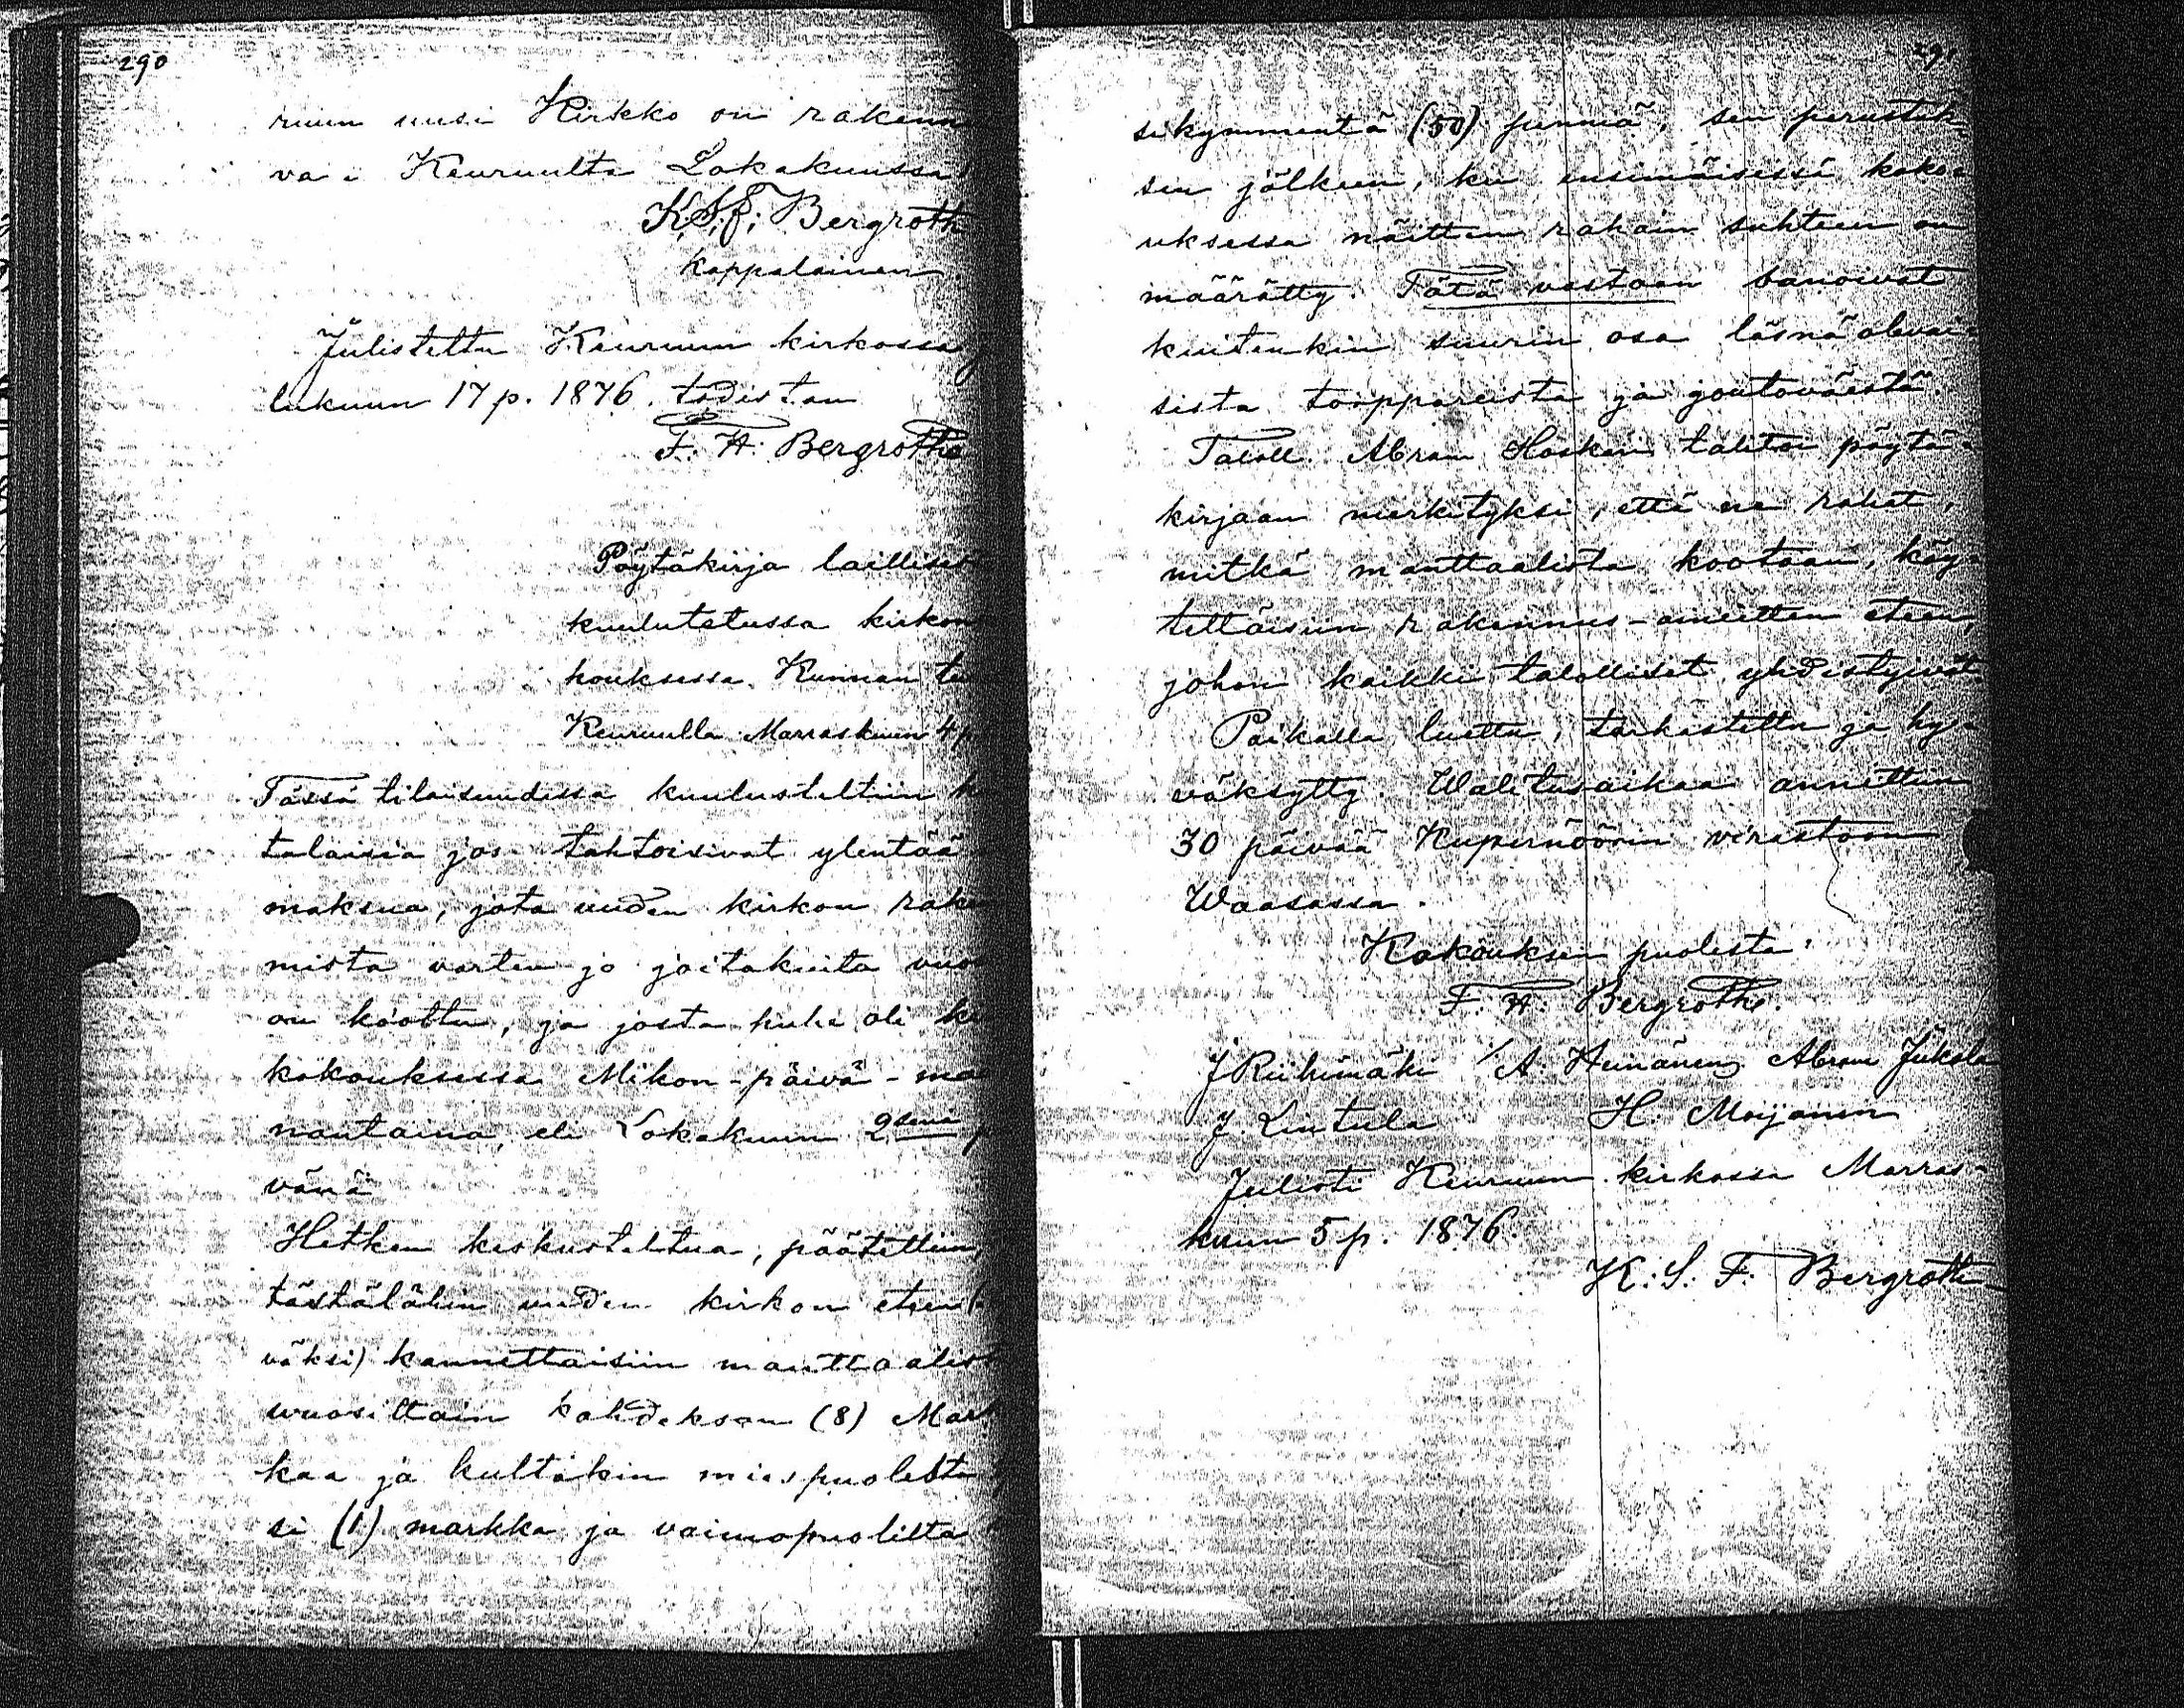 290
ruun uusi Kirkko on rakenn
va: Keuruulta Lokakuussa
K. S. F. Bergroth
Kappalainen
Julistettu Keuruun kirkossa
lukuun 17 p. 1876. todistan
F. H. Bergroth
Pöytäkirja laillisest
kuulutetussa kirkon
kouksessa Kunnan tu
Keuruulla Marraskuun 4 p
Tässä tilaisuudessa kuulusteltiin
talaisia jos tahtoisivat ylentää
maksua, jota uuden kirkon rake
mista varten jo joitakuita vuo
on koottu, ja josta puhe oli
kokouksessa Mikon-päivä-ma
nantaina, eli Lokakuun 2sena p
vänä
Hetken keskusteltua, päätettiin,
tästälähin uuden kirkon eteen
väksi) kannettaisiin manttaalist
vuosittain kahdeksan (8) Mark
kaa ja kultakin miespuolelta
si (1) markka ja vaimopuolilta
291
sikymmentä (50) penniä, sen perustuk-
sen jälkeen, ku ensimäisessä koko-
uksessa näitten rahain suhteen on
määrätty. Tätä vastaan sanoivat
kuitenkin suurin osa läsnä olevai-
sista torppareista ja joutoväestä.
Taloll. Abram Hoskari tahtoi pöytä-
kirjaan merkityksi, että ne rahat,
mitkä manttaalista kootaan, käy-
tettäisiin rakennus-aineitten eteen,
johon kaikki talolliset yhdistyivät
Paikalla luettu, tarkastettu ja hy-
väksytty. Walitusaikaa annettiin
30 päivää Kupernöörin virastoon
Waasassa.
Kokouksen puolesta:
F. H. Bergroth.
J Riihimäki A. Heinänen Abram Jukola
J. Lintula H. Moijanen
Julisti Keuruun kirkossa Marras-
kuun 5 p. 1876.
K. S. F. Bergroth